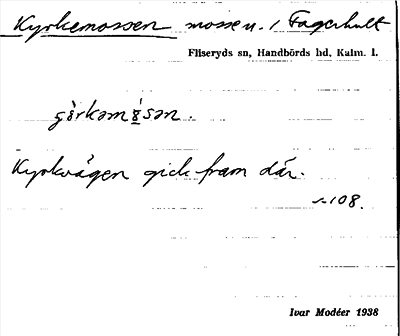 Kyrkemossen mosse u. / Fagerhult
Fliseryds sn, Handbörds hd, Kalm. l.
Kyrkvägen gick fram där.
108.
Ivar Modéer 1938